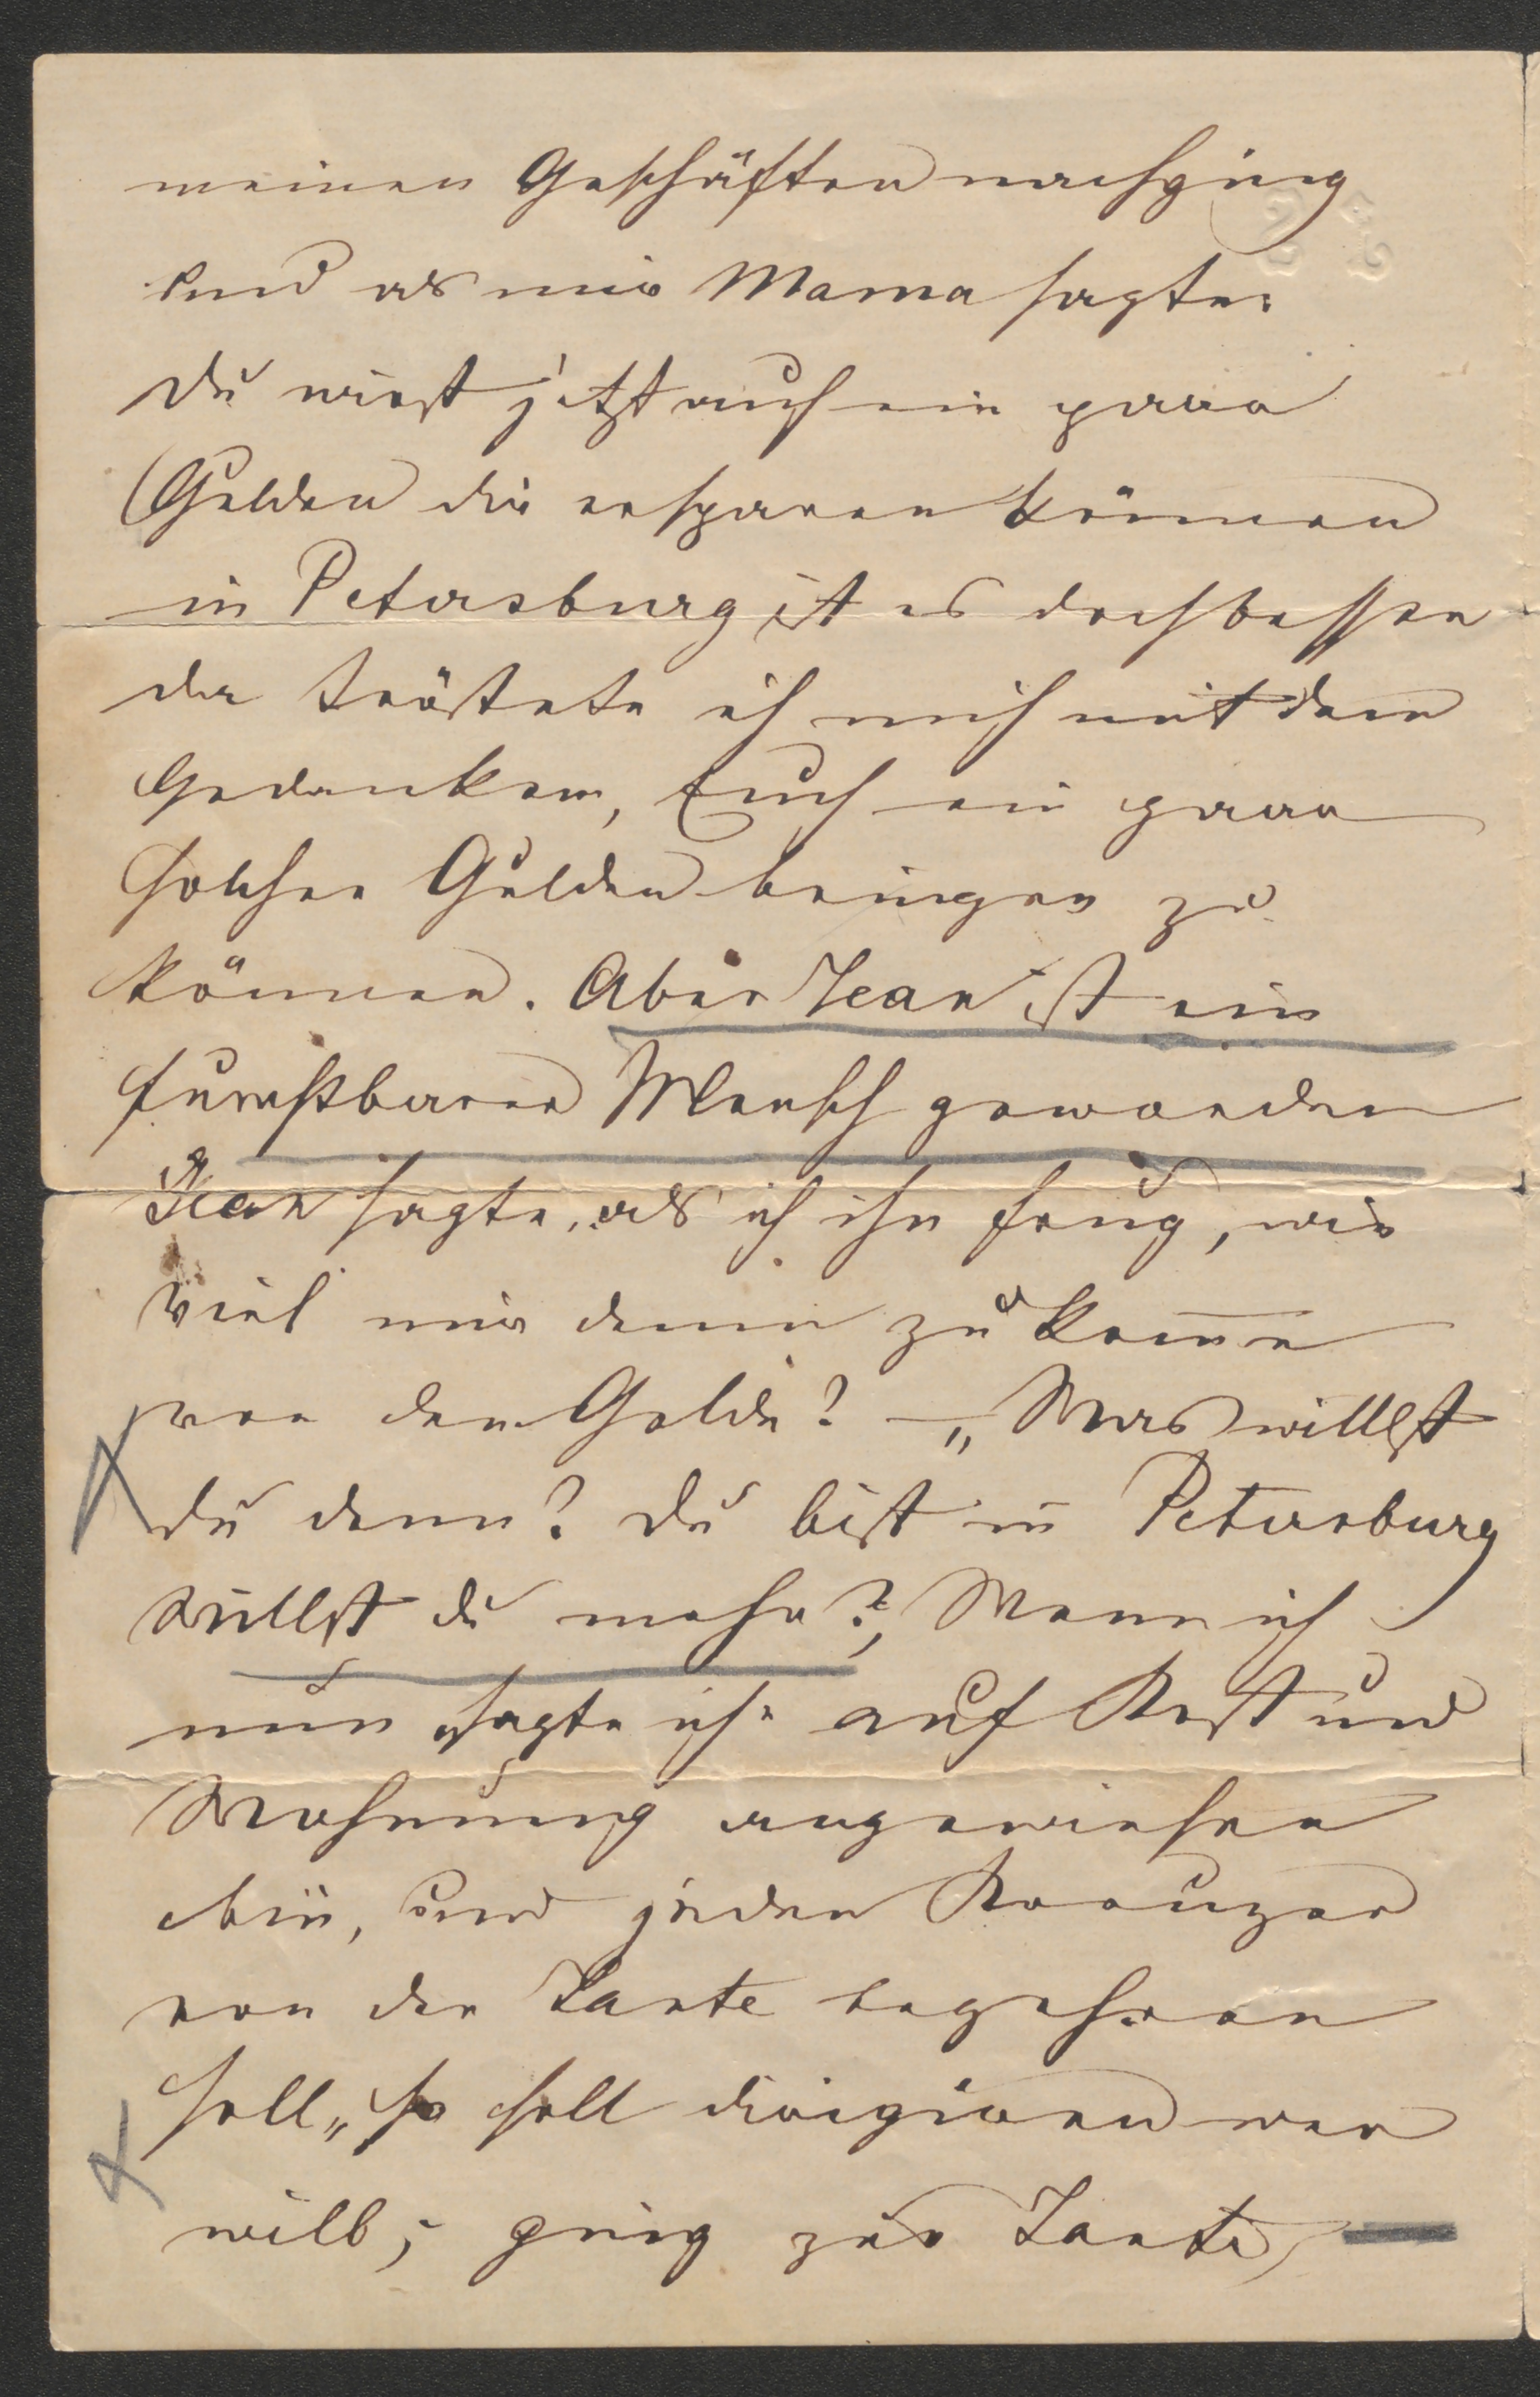 meinen Geschäften nachging
und als mir Mama sagte:
du wirst jetzt auch ein paar
Gulden dir ersparen können
in Petersburg ist es doch besser
da tröstete ich mich mit dem
Gedanken, Euch ein paar
solcher Gulden bringen zu
können. Aber Jean ist ein
furchtbarer Mensch geworden
Jean sagte, als ich ihn frug, wie
viel mir denn zu kom̅e
von dem Gelde? — „Was willst
du denn? du bist in Petersburg
willst du mehr? Wenn ich
nun sagte ich auf Kost und
Wohnung angewiesen
bin, und jeden Kreuzer
von der Tante begehren
soll, so soll dirigieren wer
will; ging zur Tante —